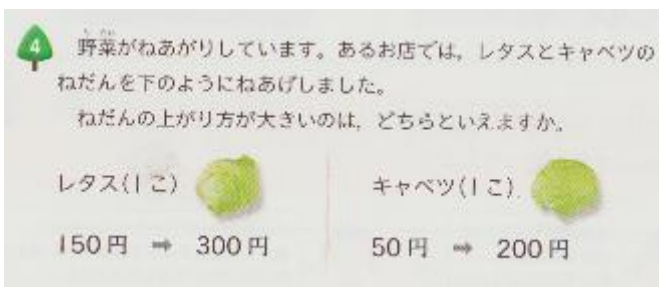 4 野菜がねあがりしています。あるお店では，レタスとキャベツの
ねだんを下のようにねあげしました。
ねだんの上がり方が大きいのは，どちらといえますか。
レタス(1こ)
キャベツ(1こ)
150円 ➡ 300円
50円 ➡ 200円